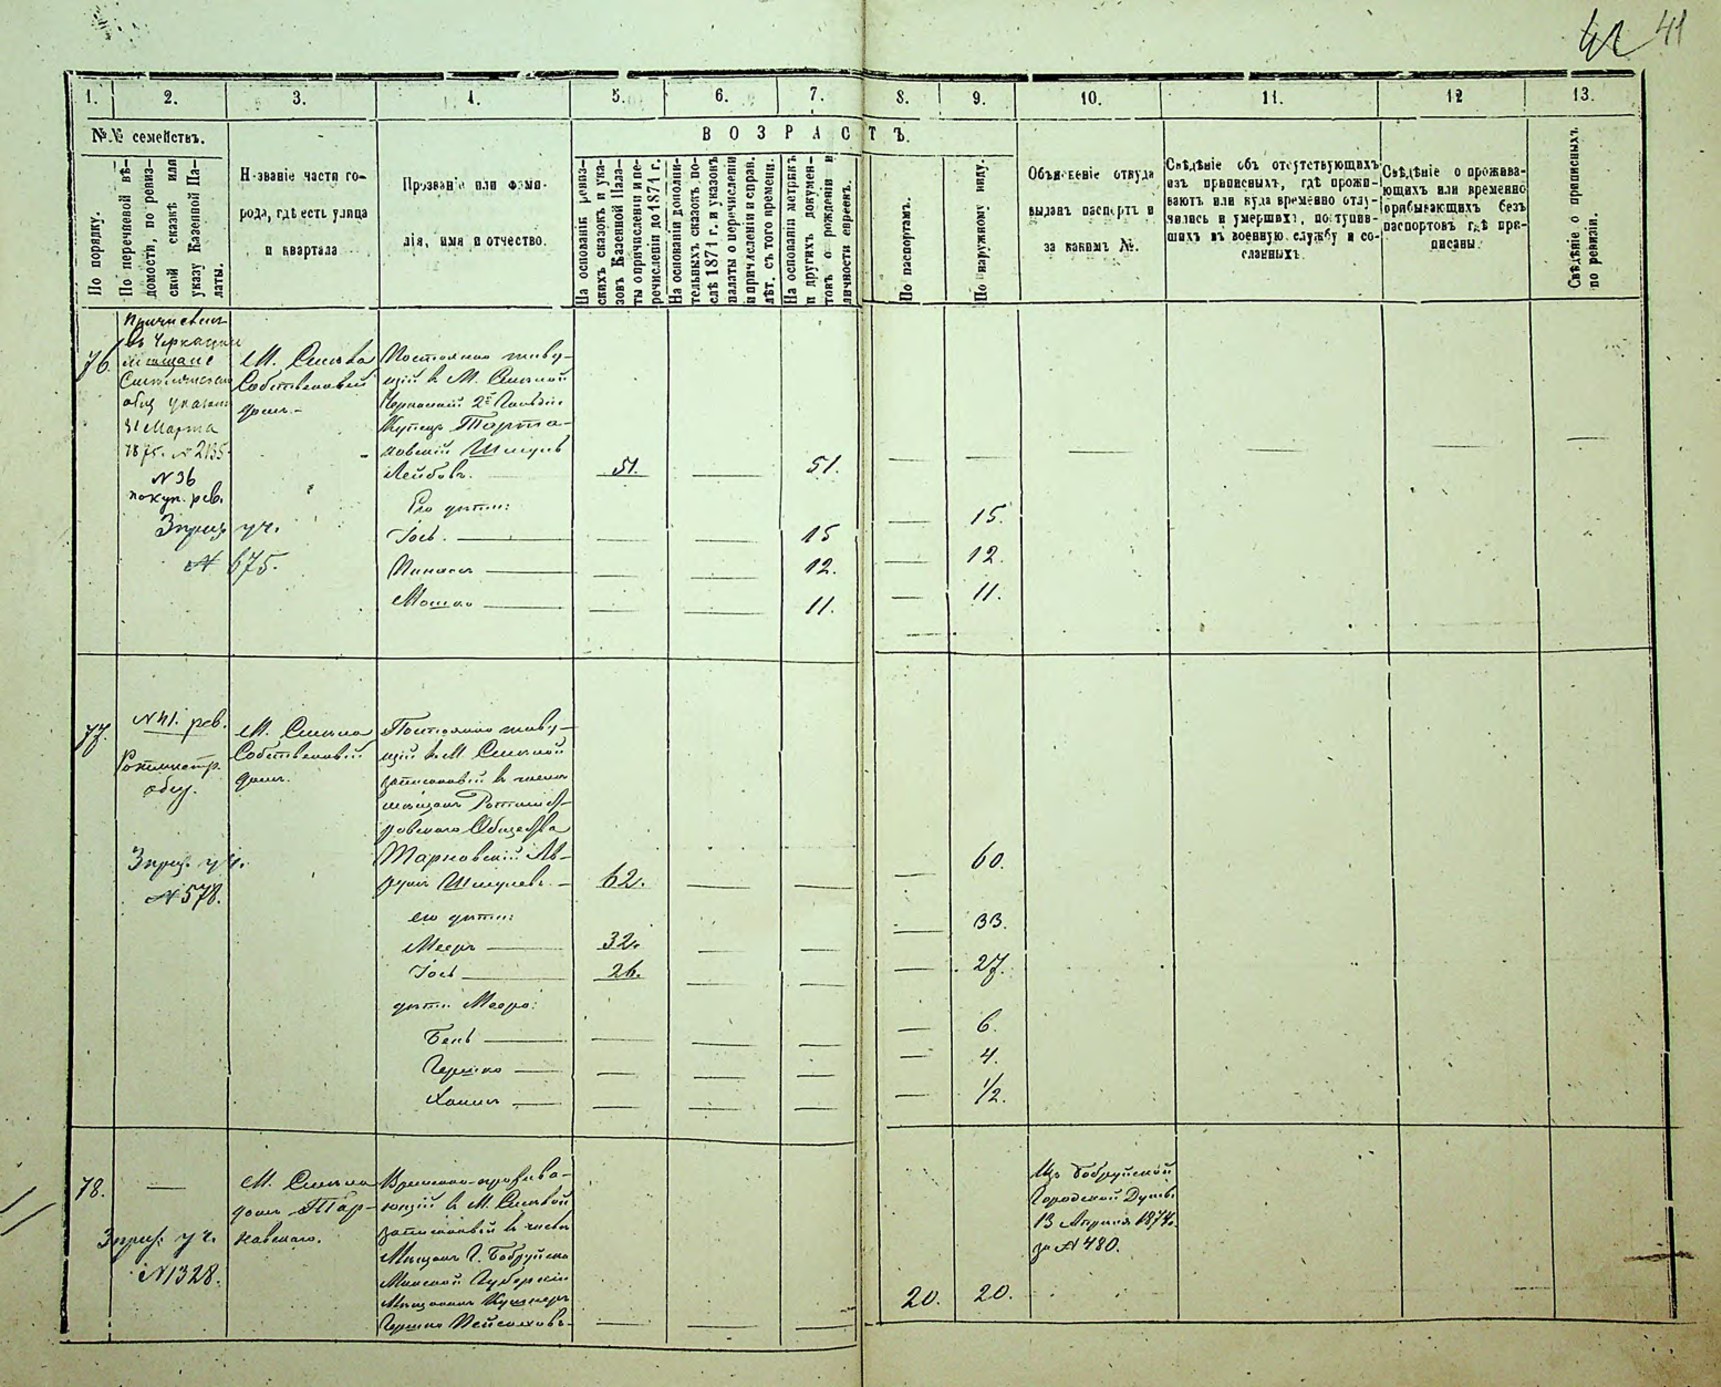 41
1. 2. 3. 4. 5. 6. 7. 8. 9. 10. 11. 12 13.
№№ семействъ.
ВОЗРАСТЪ.
По порядку.
По перечневой вѣ-
домости, по ревиз-
ской сказкѣ или
указу Казенной Па-
латы.
Названіе части го-
рода, гдѣ есть улица
и квартала
Прозваніе или фами-
лія, имя и отчество.
На основаніи ревиз-
скихъ сказокъ и ука-
зовъ Казенной Пала-
ты о причисленіи и пе-
речисленіи до 1871 г.
На основаніи дополни-
тельныхъ сказокъ по-
слѣ 1871 г. и указовъ
палаты о перечисленіи
и причисленіи и справ.
лѣт. съ того времени.
На основаніи метрикъ
и другихъ докумен-
товъ о рожденіи и
личности евреевъ.
По паспортамъ.
По наружному виду.
Объясненіе откуда
выданъ паспортъ и
за какимъ №.
Свѣдѣніе объ отсутствующихъ
изъ приписныхъ, гдѣ прожи-
ваютъ или куда временно отлу-
чились и умершихъ, поступив-
шихъ въ военную службу и со-
сланныхъ.
Свѣдѣніе о прожива-
ющихъ или временно
прибывающихъ безъ
паспортовъ гдѣ при-
писаны.
Свѣдѣніе о приписныхъ
по ревизіи.
76
Причислен
въ Черкаскіе
мѣщане
общ указомъ
31 Марта
1875. № 2135.
№ 36
покуп. рев.
уч.
№ 675.
М. Смѣла
Собственный
домъ.
Постоянно живу-
щій в М. Смѣлой
Черкаскій 2й Гильдіи
Купецъ Тарта-
ковскій Шмуль
Лейбовъ. 51. 51.
Его дѣти:
Іось 15 15.
Пинхасъ 12. 12.
Мошко 11. 11.
77.
№ 41. рев.
Ротмистр.
общ.
уч.
№ 578.
М. Смѣла
Собственный
домъ.
Постоянно живу-
щій в М. Смѣлой
записанный в число
мѣщанъ Ротмист-
ровскаго Общества
Тарновскій Ав-
румъ Шмулевъ. 62. 60.
его дѣти:
Мееръ 32. 33.
Іось 26. 27.
дѣти Меера:
Бень 6.
Гершко 4.
Хаимъ 1/2.
78.
уч.
№ 1328.
М. Смѣла
домъ Тар-
навскаго.
Временно прожива-
ющій в М. Смѣлой
записанный в число
Мѣщанъ Г. Бобруйска
Минской Губерніи
Мѣщанинъ Кушнеръ
Гершко Пейсаховъ 20. 20.
Изъ Бобруйской
Городской Думы
13 Апрѣля 1874.
за № 480.